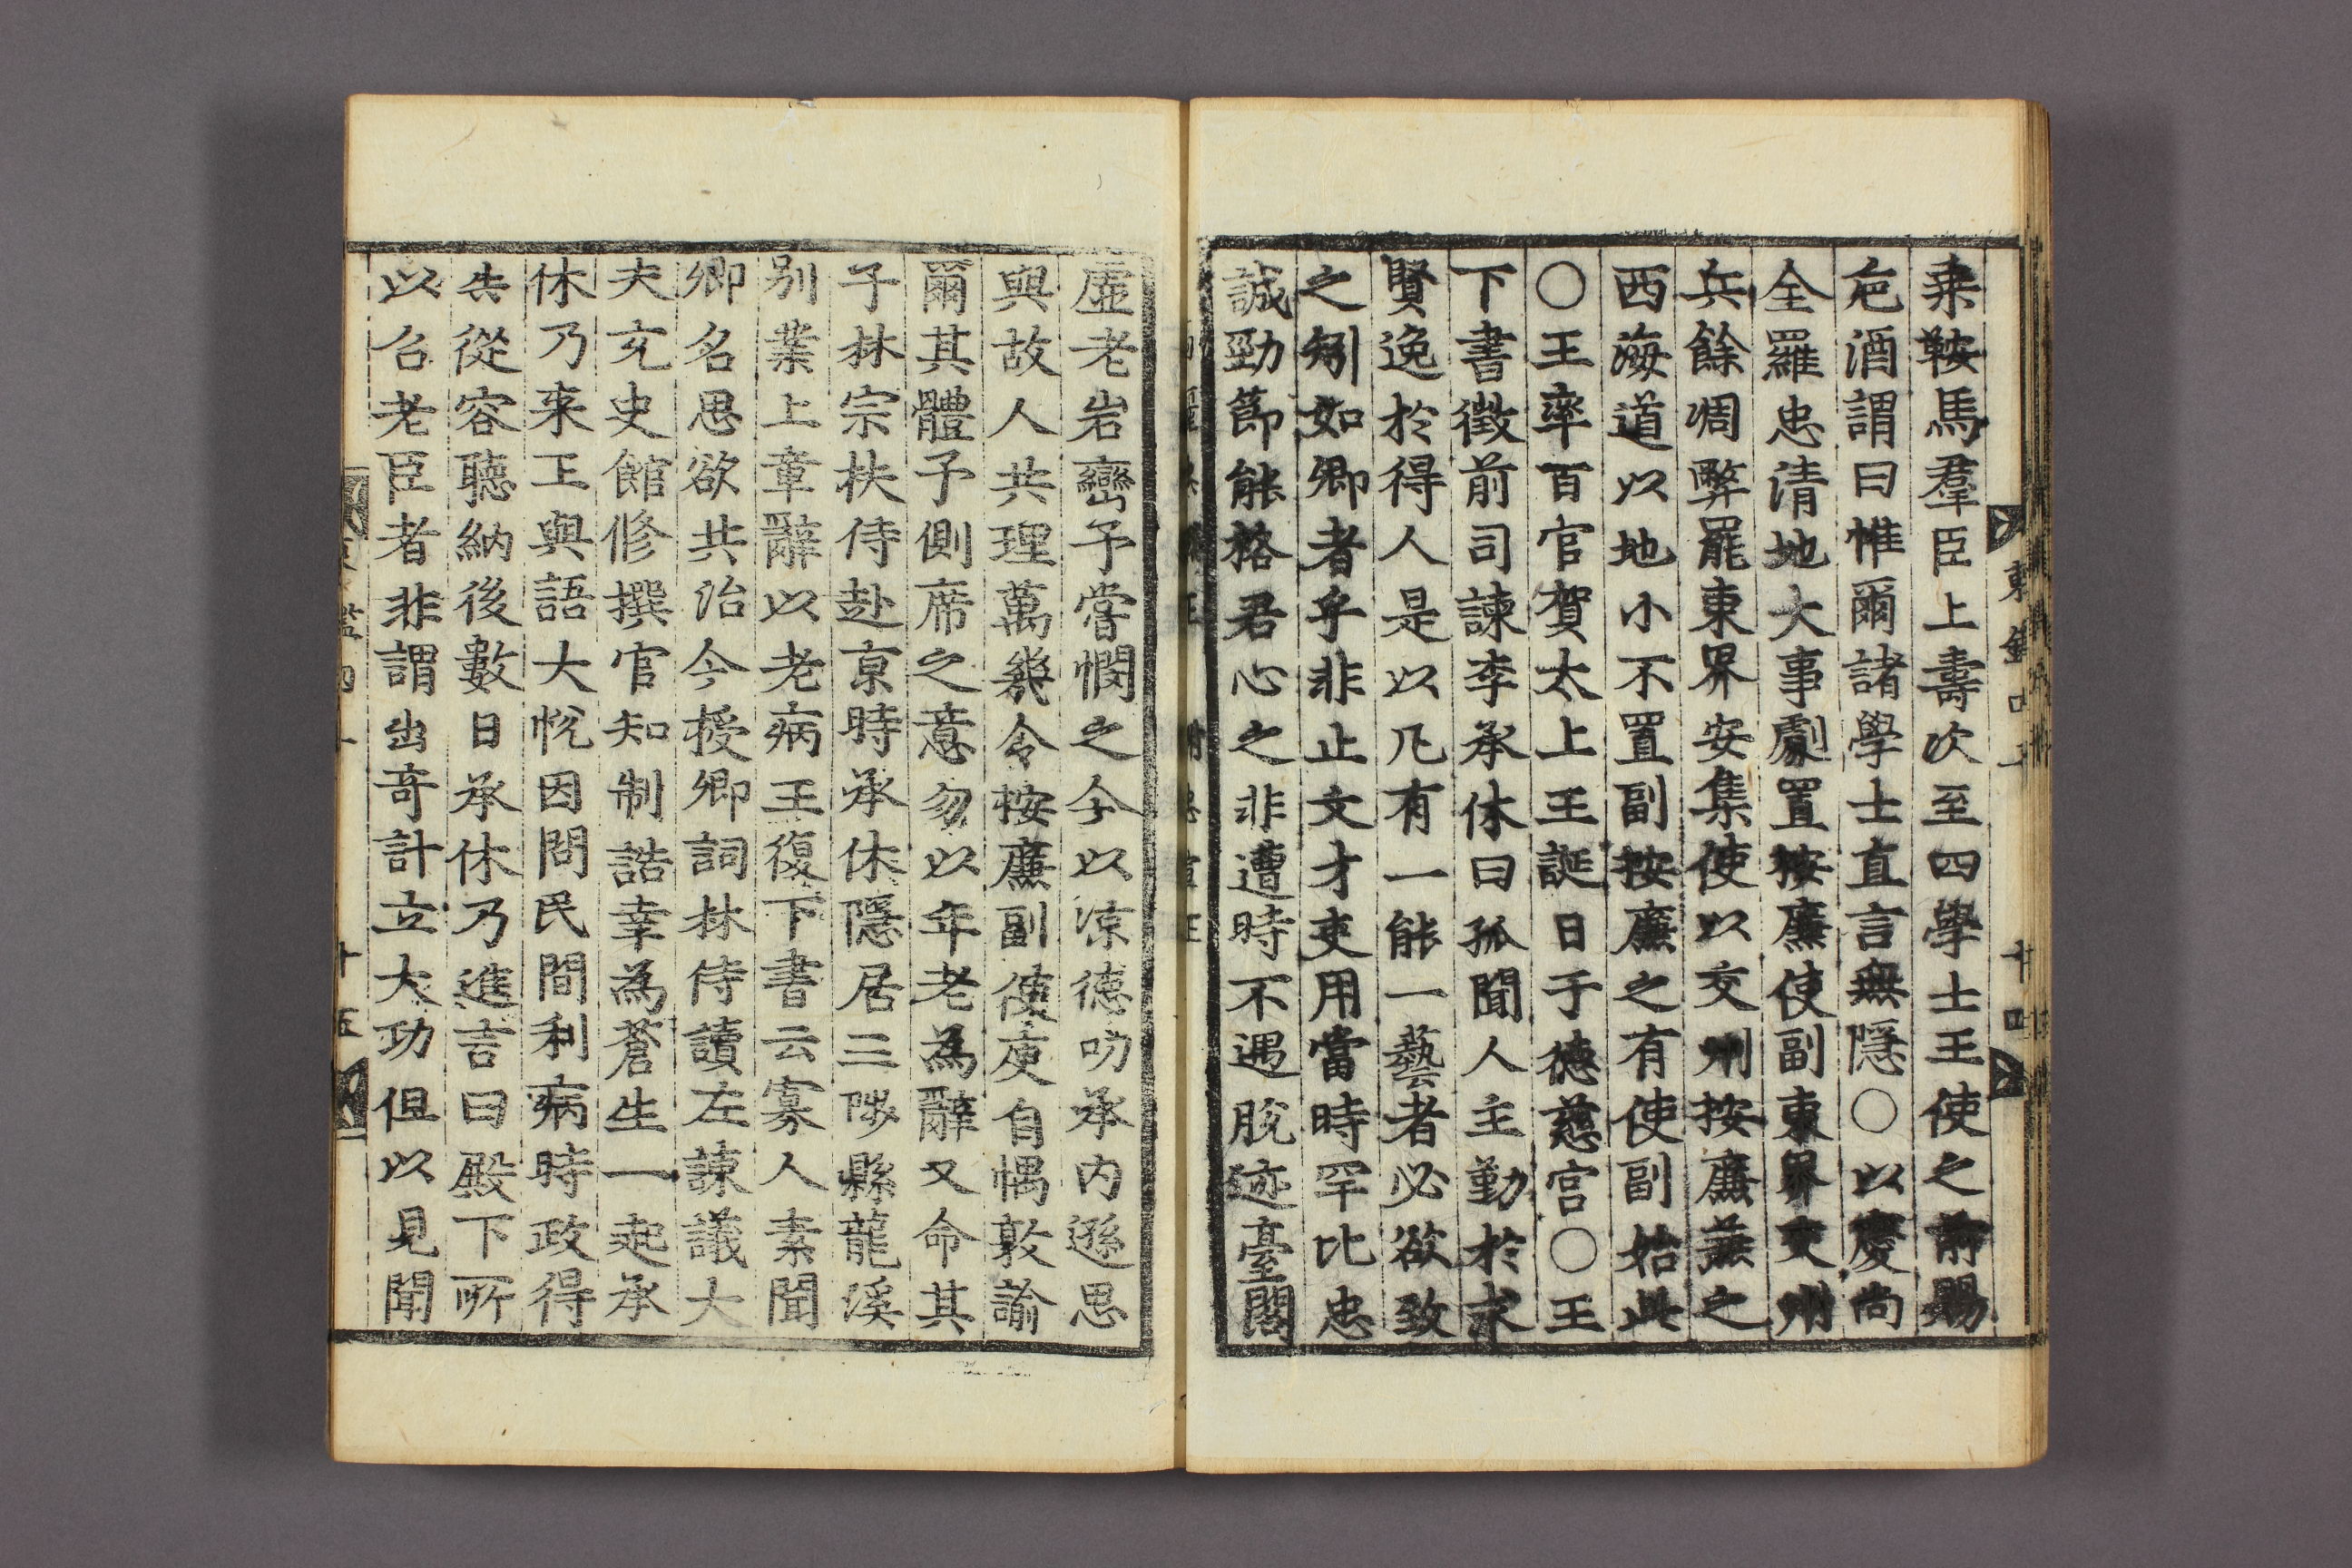 乗鞍馬羣臣上壽次至四學士王使之前賜
巵酒謂曰惟爾諸學士直言無隱〇以慶尙
全羅忠清地大事劇置按廉使副東界交州
兵餘凋弊罷東界安集使以交州按廉兼之
西海道以地小不置副按廉之有使副始此
〇王率百官賀太上王誕日于德慈宮〇王
下書徵前司諫李承休曰孤聞人主勤於求
賢逸於得人是以凡有一能一藝者必欲致
之矧如卿者乎非止文才吏用當時罕比忠
誠勁節能格君心之非遭時不遇脫迹臺閣
虛老岩巒予嘗憫之今以涼德叨承内遜思
與故人共理萬幾令按廉副使庾自㥥敦諭
爾其體予側席之意勿以年老為辭又命其
子林宗扶侍赴京時承休隱居三陟縣龍溪
别業上章辭以老病王復下書云寡人素聞
卿名思欲共治今授卿詞林侍讀左諫議大
夫充史館修撰官知制誥幸為蒼生一起承
休乃来王與語大悅因問民間利病時政得
失從容聽納後數日承休乃進言曰殿下所
以召老臣者非謂出奇計立大功但以見聞
東鑑四
十四
十五